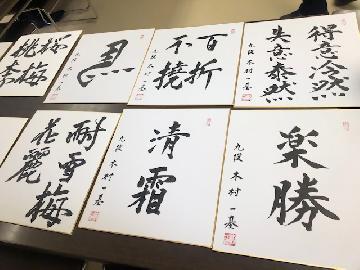 桜梅
桃李
馬
九段 木村一基
百折
不撓
九段 木村一基
得意冷然
失意泰然
九段 木村一基
耐雪梅
花麗
清霜
九段 木村一基
楽勝
九段 木村一基